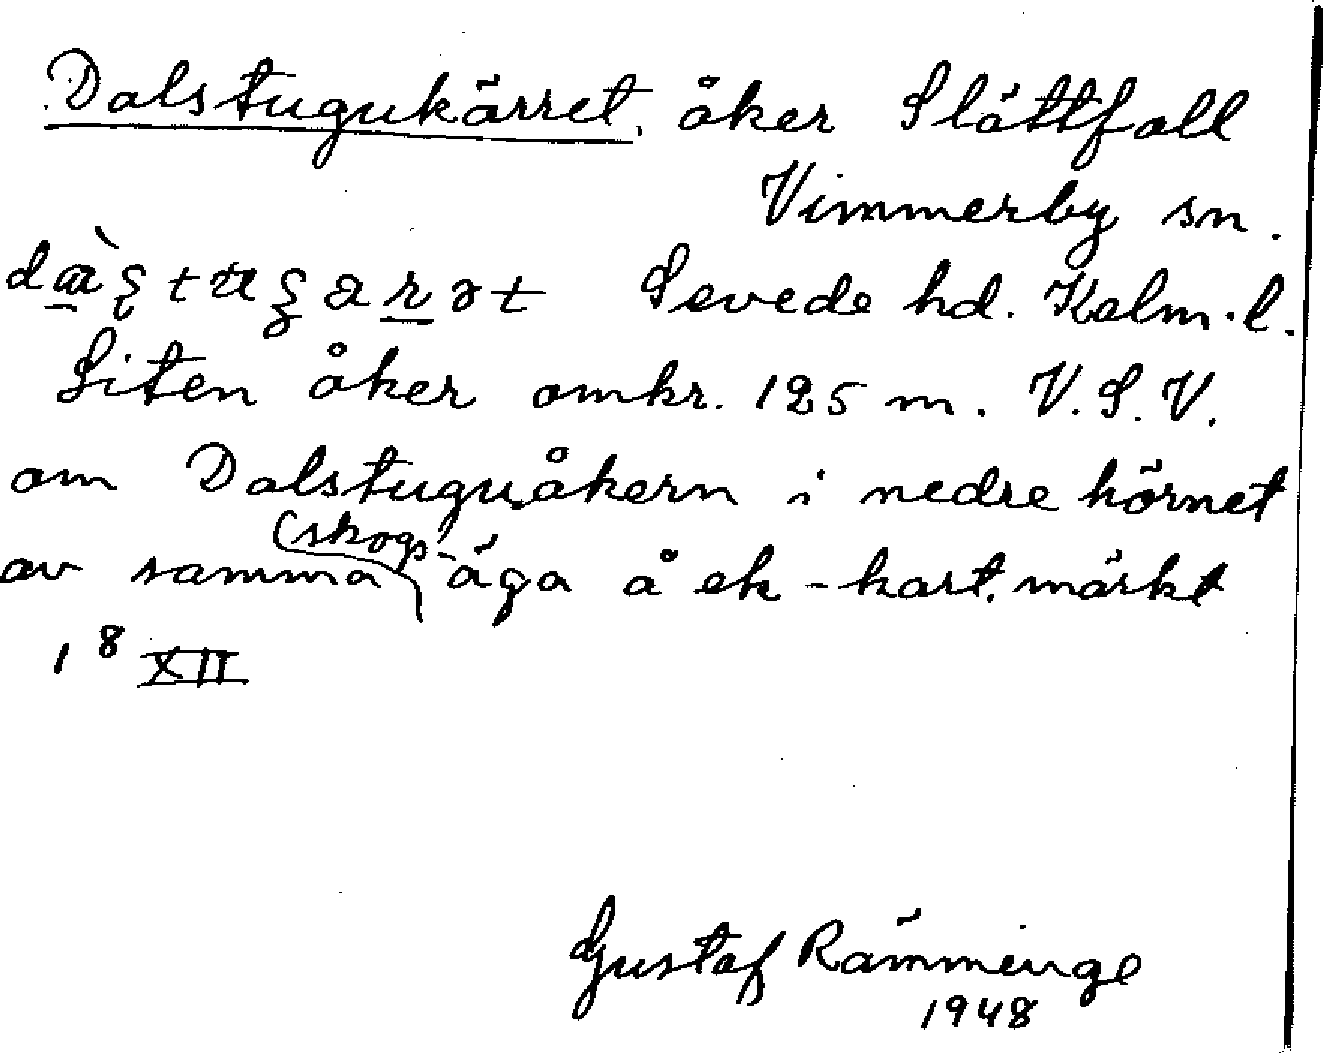 Dalstugukärret, åker Slåttfall
Vimmerby sn.
Sevede hd. Kalm.l.
Liten åker omkr. 125 m. V.S.V.
om Dalstuguåkern i nedre hörnet
av samma (skogs-äga å ek-kart. märkt
1 8 XII
Gustaf Rämminge
1948